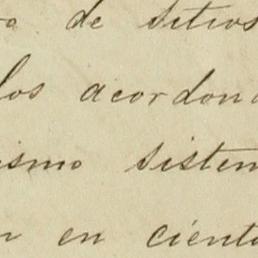 ro de sitios
los acordona
ismo sistem
n en cienta